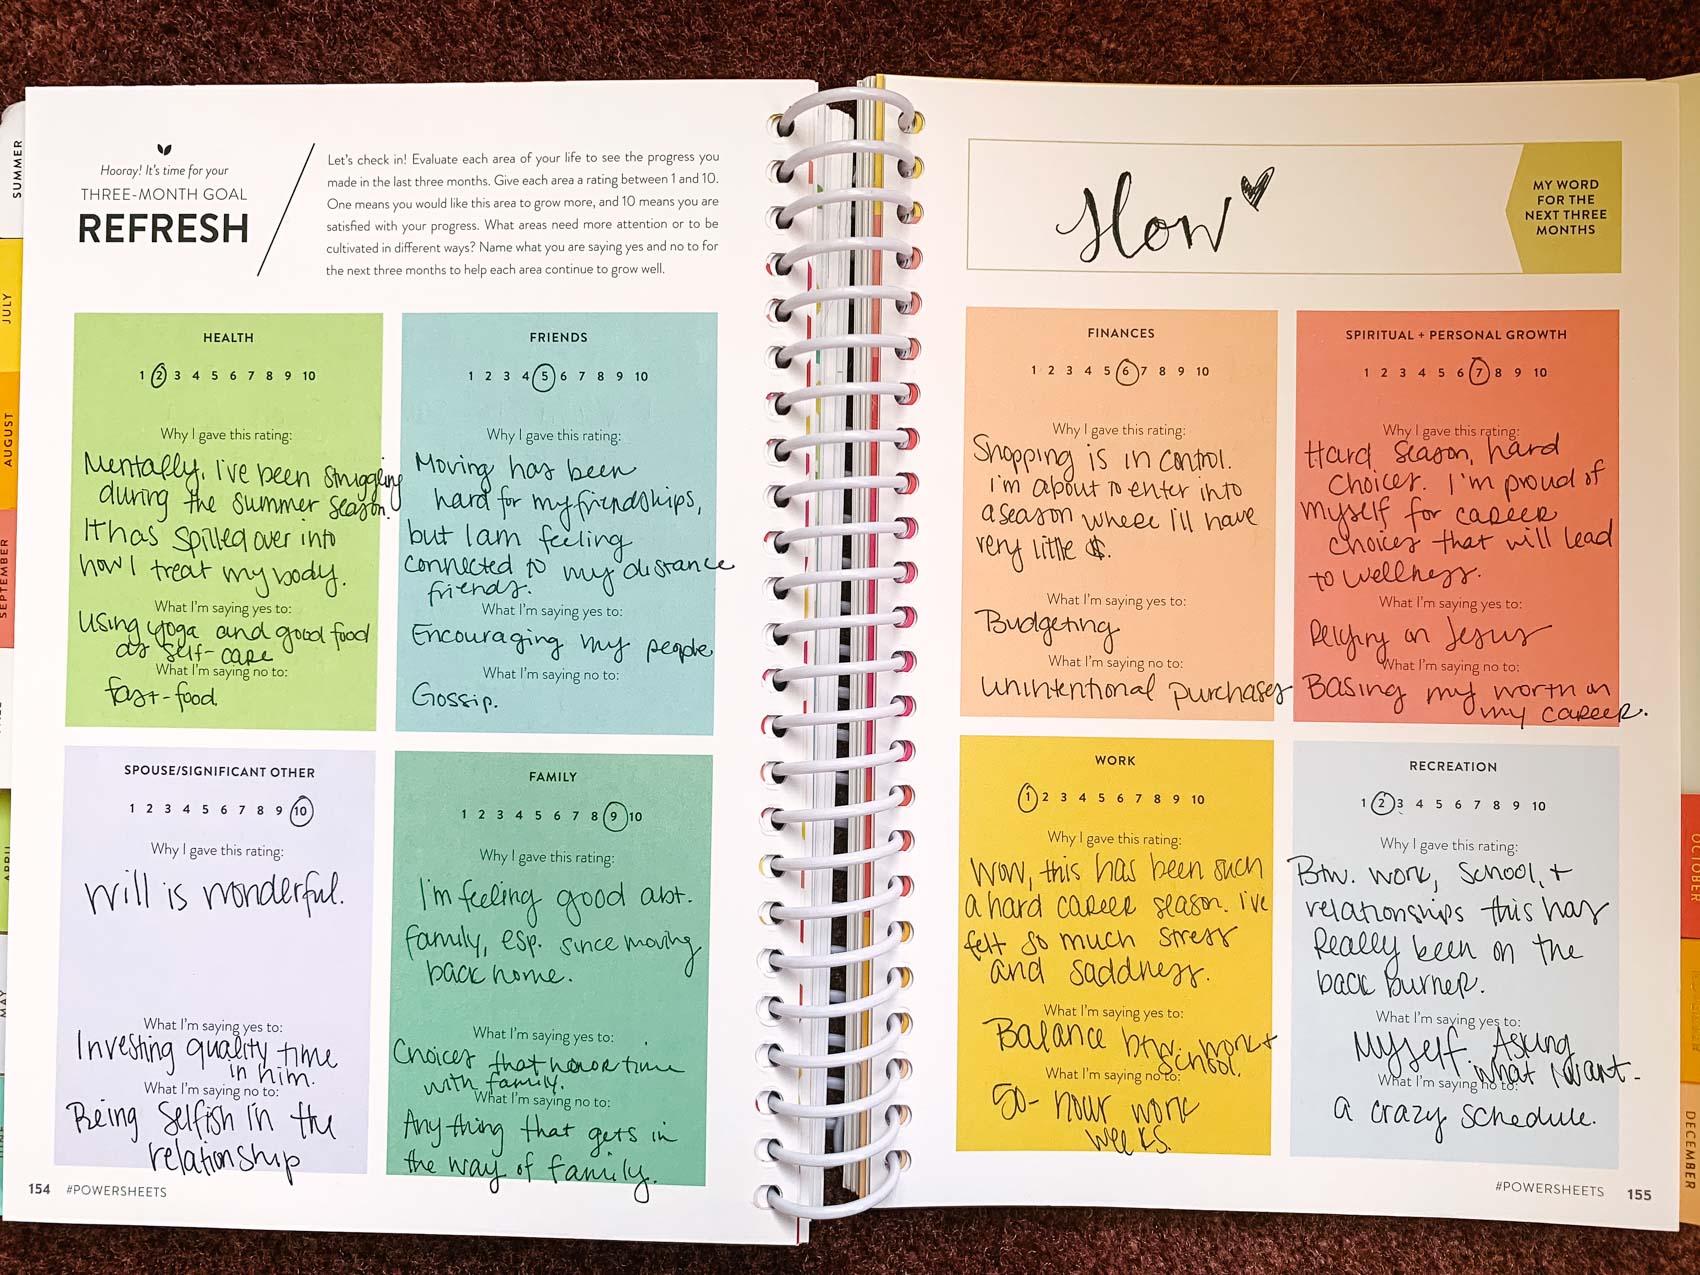 SUMMER
JULY
AUGUST
SEPTEMBER
APRIL
MAY
Hooray! It's time for your
THREE-MONTH GOAL
REFRESH
Let's check in! Evaluate each area of your life to see the progress you
made in the last three months. Give each area a rating between 1 and 10.
One means you would like this area to grow more, and 10 means you are
satisfied with your progress. What areas need more attention or to be
cultivated in different ways? Name what you are saying yes and no to for
the next three months to help each area continue to grow well.
HEALTH
1 2 3 4 5 6 7 8 9 10
Why I gave this rating:
Mentally, I've been struggling
during the summer season.
It has spilled over into
how I treat my body.
What I'm saying yes to:
Using yoga and good food
as self-care
What I'm saying no to:
fast-food.
FRIENDS
1 2 3 4 5 6 7 8 9 10
Why I gave this rating:
Moving has been
hard for my friendships,
but I am feeling
connected to my distance
friends.
What I'm saying yes to:
Encouraging my people
What I'm saying no to:
Gossip.
SPOUSE/SIGNIFICANT OTHER
1 2 3 4 5 6 7 8 9 10
Why I gave this rating:
Will is wonderful.
What I'm saying yes to:
Investing quality time
in him.
What I'm saying no to:
Being selfish in the
relationship
FAMILY
1 2 3 4 5 6 7 8 9 10
Why I gave this rating:
I'm feeling good abt.
family, esp. since moving
back home.
What I'm saying yes to:
Choices that honor time
with family.
What I'm saying no to:
Anything that gets in
the way of family.
154 #POWERSHEETS
MY WORD
FOR THE
NEXT THREE
MONTHS
FINANCES
1 2 3 4 5 6 7 8 9 10
Why I gave this rating:
Shopping is in control.
I'm about to enter into
a season where I'll have
very little $.
What I'm saying yes to:
Budgeting
What I'm saying no to:
Unintentional purchases
SPIRITUAL + PERSONAL GROWTH
1 2 3 4 5 6 7 8 9 10
Why I gave this rating:
Hard season, hard
choices. I'm proud of
myself for career
choices that will lead
to wellness.
What I'm saying yes to:
Relying on Jesus
What I'm saying no to:
Basing my worth on
my career.
WORK
1 2 3 4 5 6 7 8 9 10
Why I gave this rating:
Wow, this has been such
a hard career season. I've
felt so much stress
and saddness.
What I'm saying yes to:
Balance btw. work +
school.
What I'm saying no to:
50-hour work
weeks.
RECREATION
1 2 3 4 5 6 7 8 9 10
Why I gave this rating:
Btw. work, school, +
relationships this has
really been on the
back burner.
What I'm saying yes to:
Myself. Asking
what I want.
What I'm saying no to:
a crazy schedule.
#POWERSHEETS 155
OCTOBER
DECEMBER